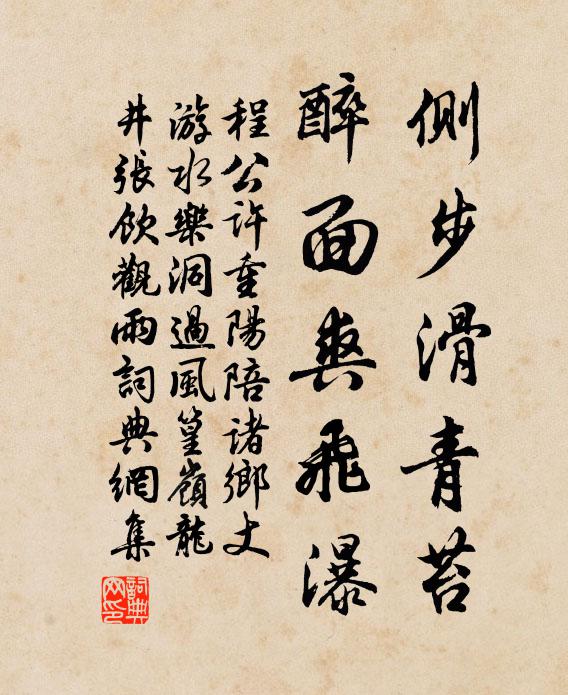 側步滑青苔
醉面爽飛瀑
程公許重陽陪诸鄉丈
游水樂洞過風篁嶺龍
井張飲觀雨詞典網集
詞典
网印